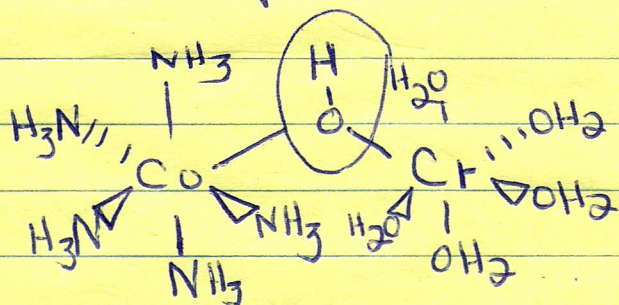 NH3 H H2O
H3N O OH2
Co Cr
H3N NH3 H2O OH2
NH3 OH2